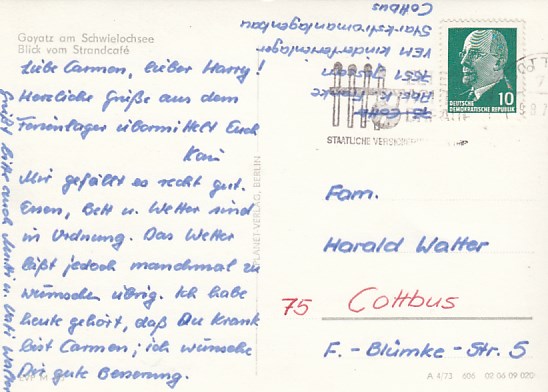 Goyatz am Schwielochsee
Blick vom Strandcafé
Liebe Carmen, lieber Harry!
Herzliche Grüße aus dem
Ferienlager übermittelt Euch
Kai
Mir gefällt es recht gut.
Essen, Bett u. Wetter sind
in Ordnung. Das Wetter
läßt jedoch manchmal zu
wünschen übrig. Ich habe
heute gehört, daß Du krank
bist Carmen; ich wünsche
Dir gute Besserung.
Grüßt bitte auch Mutti u. Vati Walter
PLANET-VERLAG, BERLIN
Cottbus
Starkstromanlagenbau
VEM Kinderferienlager
7551 Jessern
75 Cottbus
STAATLICHE
DEUTSCHE
DEMOKRATISCHE REPUBLIK
10
Fam.
Harald Walter
75 Cottbus
F.-Blümke-Str. 5
A 4/73 606 02 06 09 020